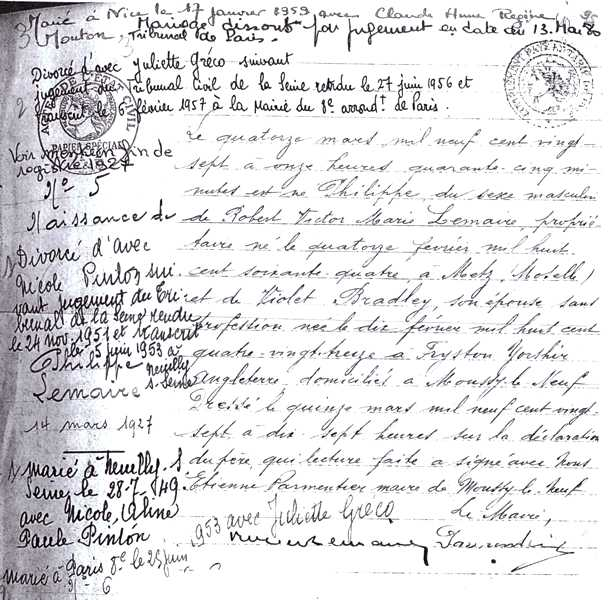 3 Marié à Nice le 17 janvier 1959 avec Claude Anne Régine
Mouton, Mariage dissout par jugement en date du 13. Mai 80
Tribunal de Paris.
2 Divorcé d'avec Juliette Gréco suivant
jugement du Tribunal civil de la Seine rendu le 27 juin 1956 et
transcrit le 6 février 1957 à la Mairie du 8e arrondt de Paris.
ETAT CIVIL
PAPIER SPECIAL
Voir mention fin de
registre 1927
No 5
Naissance du
Divorcé d'avec
Nicole Pinton sui
vant jugement du Tri
bunal de la Seine rendu
le 24 nov. 1951 et transcrit
le 5 juin 1953 à
Neuilly
s-Seine
Philippe
Lemaire
14 mars 1927
1 marié à Neuilly. s
Seine, le 28-7-1949.
avec Nicole, Aline
Paule Pinton
Marié à Paris 8e le 25 juin
1953 avec Juliette Gréco
Le quatorze mars, mil neuf cent vingt-
sept à onze heures quarante-cinq mi-
nutes est né Philippe, du sexe masculin
de Robert Victor Marie Lemaire, proprié-
taire né le quatorze février mil huit
cent soixante-quatre, à Metz, Moselle)
et de Violet Bradley, son épouse sans
profession née le dix février mil huit cent
quatre-vingt-treize à Fryston Yorshir
Angleterre, domiciliés à Moussy-le-Neuf
Dressé le quinze mars mil neuf cent vingt-
sept à dix-sept heures sur la déclaration
du père, qui lecture faite a signé avec Nous
Étienne Parmentier maire de Moussy-le-Neuf
Le Maire,